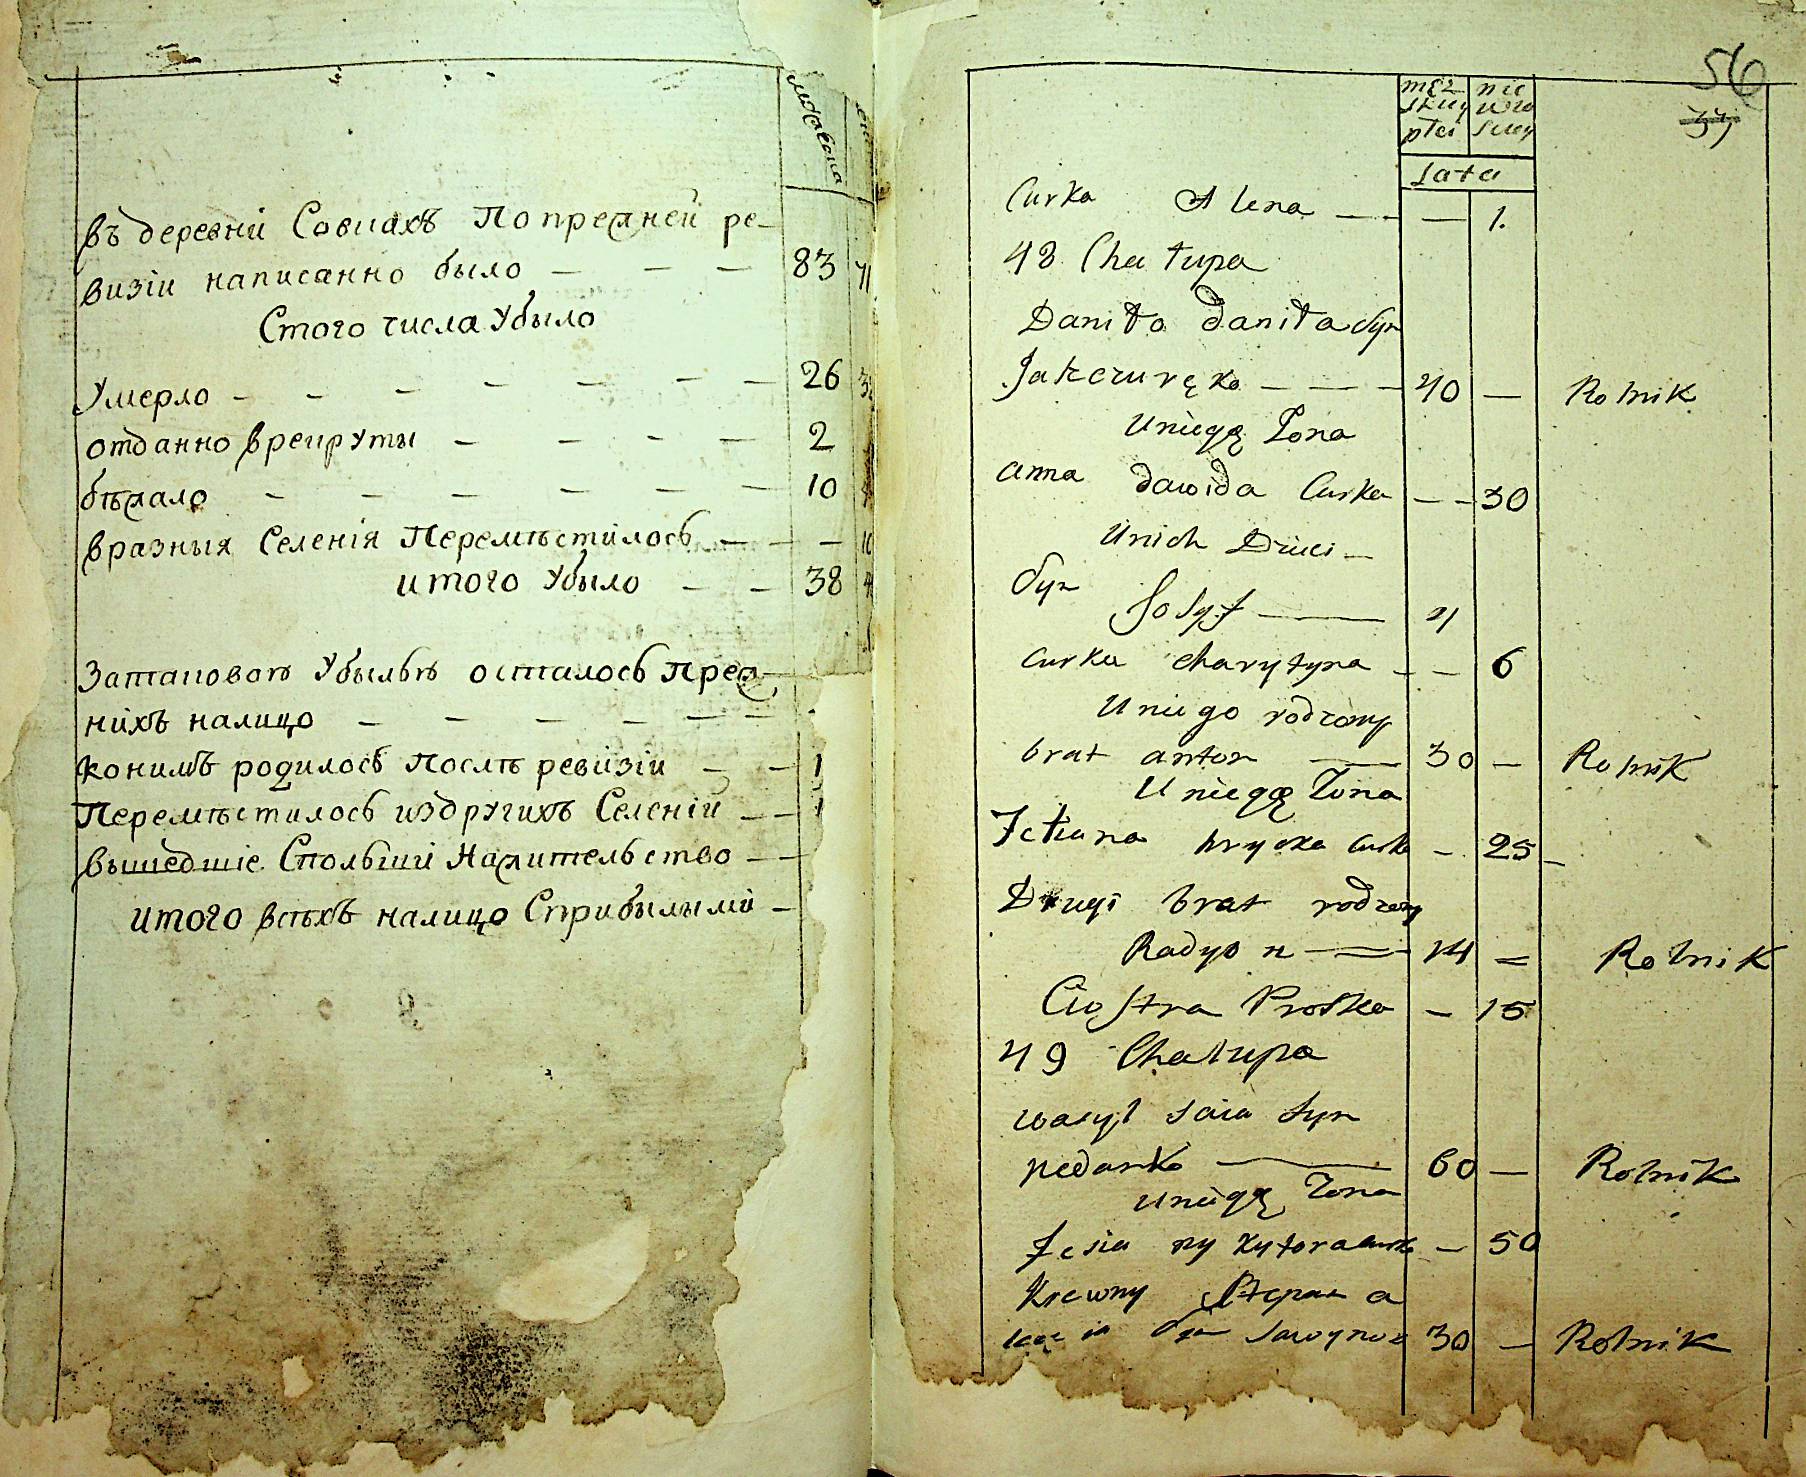 мужеска
въ деревни Совпахъ По прежней ре-
визіи написанно было — — — 83 71
Стого числа Убыло
Умерло — — — — — — — 26
отданно врекруты — — — — — 2
бѣжало — — — — — — 10
вразныя Селенія Перемѣстилось — — —
итого Убыло — — 38
Затаковою Убылью осталось Преж-
нихъ налицо — — — — — —
конимъ родилось послѣ ревизіи — — 1
Перемѣстилось издругихъ Селеній — — 1
вышедшіе Спольши Нажительство — —
итого всѣхъ налицо Сприбылыми —
56
37
męz nie
skiey wia
płci skiey
Lata
Curka Alena — — — 1.
48 Chałupa
Daniło daniła Syn
— — — 40 — Rolnik
Uniegą Żona
anna dawida Curka — — 30
Unich Dzieci —
Syn Josyf — 4
Curka charytyna — — 6
Uniego rodzony
brat anton — 30 — Rolnik
Uniegą Żona
Tetiana hrycka Curk — 25 —
Drugi brat rodzony
Radyon — 14 = Rolnik
Ciostra Proska — 15
49 Chałupa
wasyl Saia Syn
nedanko — 60 — Rolnik
Uniegą Żona
Fesia nykyfora curk — 50
Krewny Stepan a
Syn 30 — Rolnik